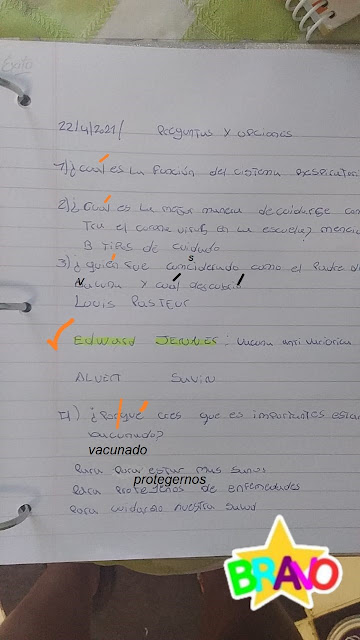 22/4/2021/ Preguntas y opciones
1) ¿cuál es la función del cistema respiratori
2) ¿cuál es la mayor manera de cuidarse con
tra el corona virus en la escuela? menci
3 tips de cuidado
3) ¿quién fue considerado como el Padre d
vacuna y cuál descubrió
Louis Pasteur
✓ Edward JENNER: vacuna anti variolica
Alvert Savin
4) ¿Por qué cres que es importantes estar
vacunado?
vacunado
Para estar mas sanos
protegernos
Para de enfermedades
Para nuestra salud
BRAVO